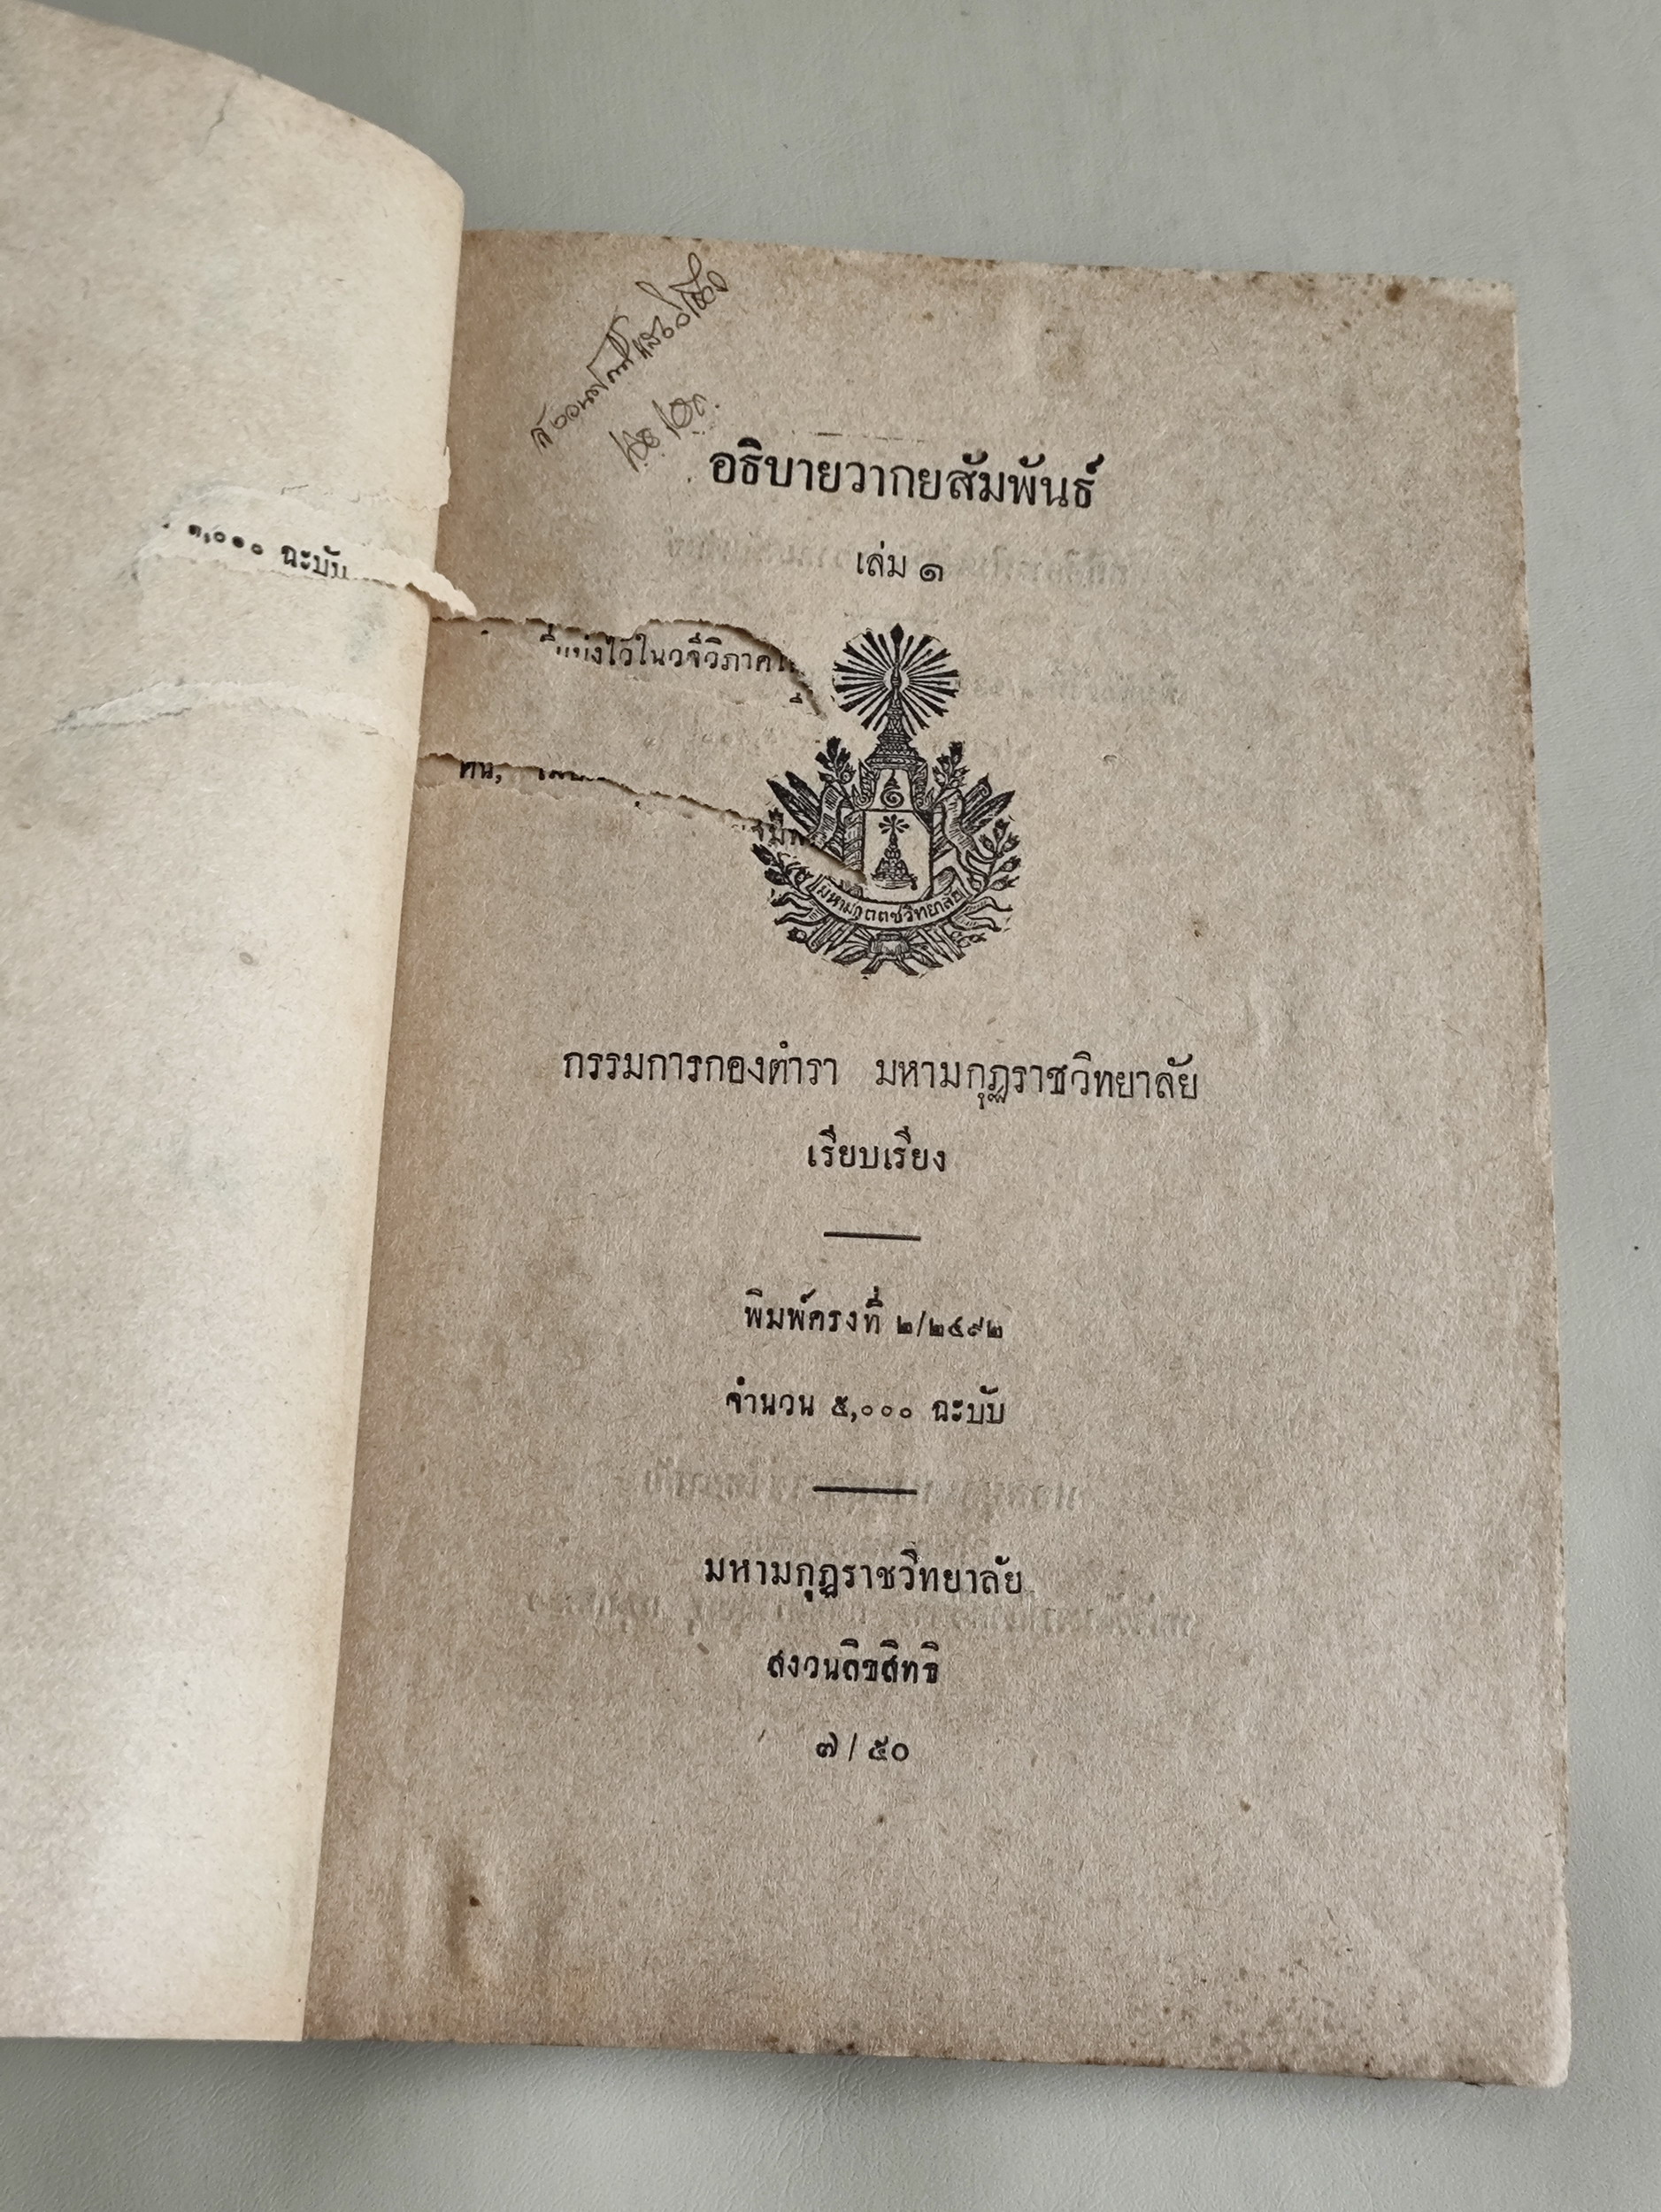 ๑,๐๑๐ ฉะบับ
อธิบายวากยสัมพันธ์
เล่ม ๑
ไว้ในวจีวิภาค
มหามกุฏราชวิทยาลัย
กรรมการกองตำรา มหามกุฏราชวิทยาลัย
เรียบเรียง
พิมพ์ครงที่ ๒/๒๔๙๒
จำนวน ๕,๐๐๐ ฉะบับ
มหามกุฏราชวิทยาลัย
สงวนลิขสิทธิ
๗ / ๕๐